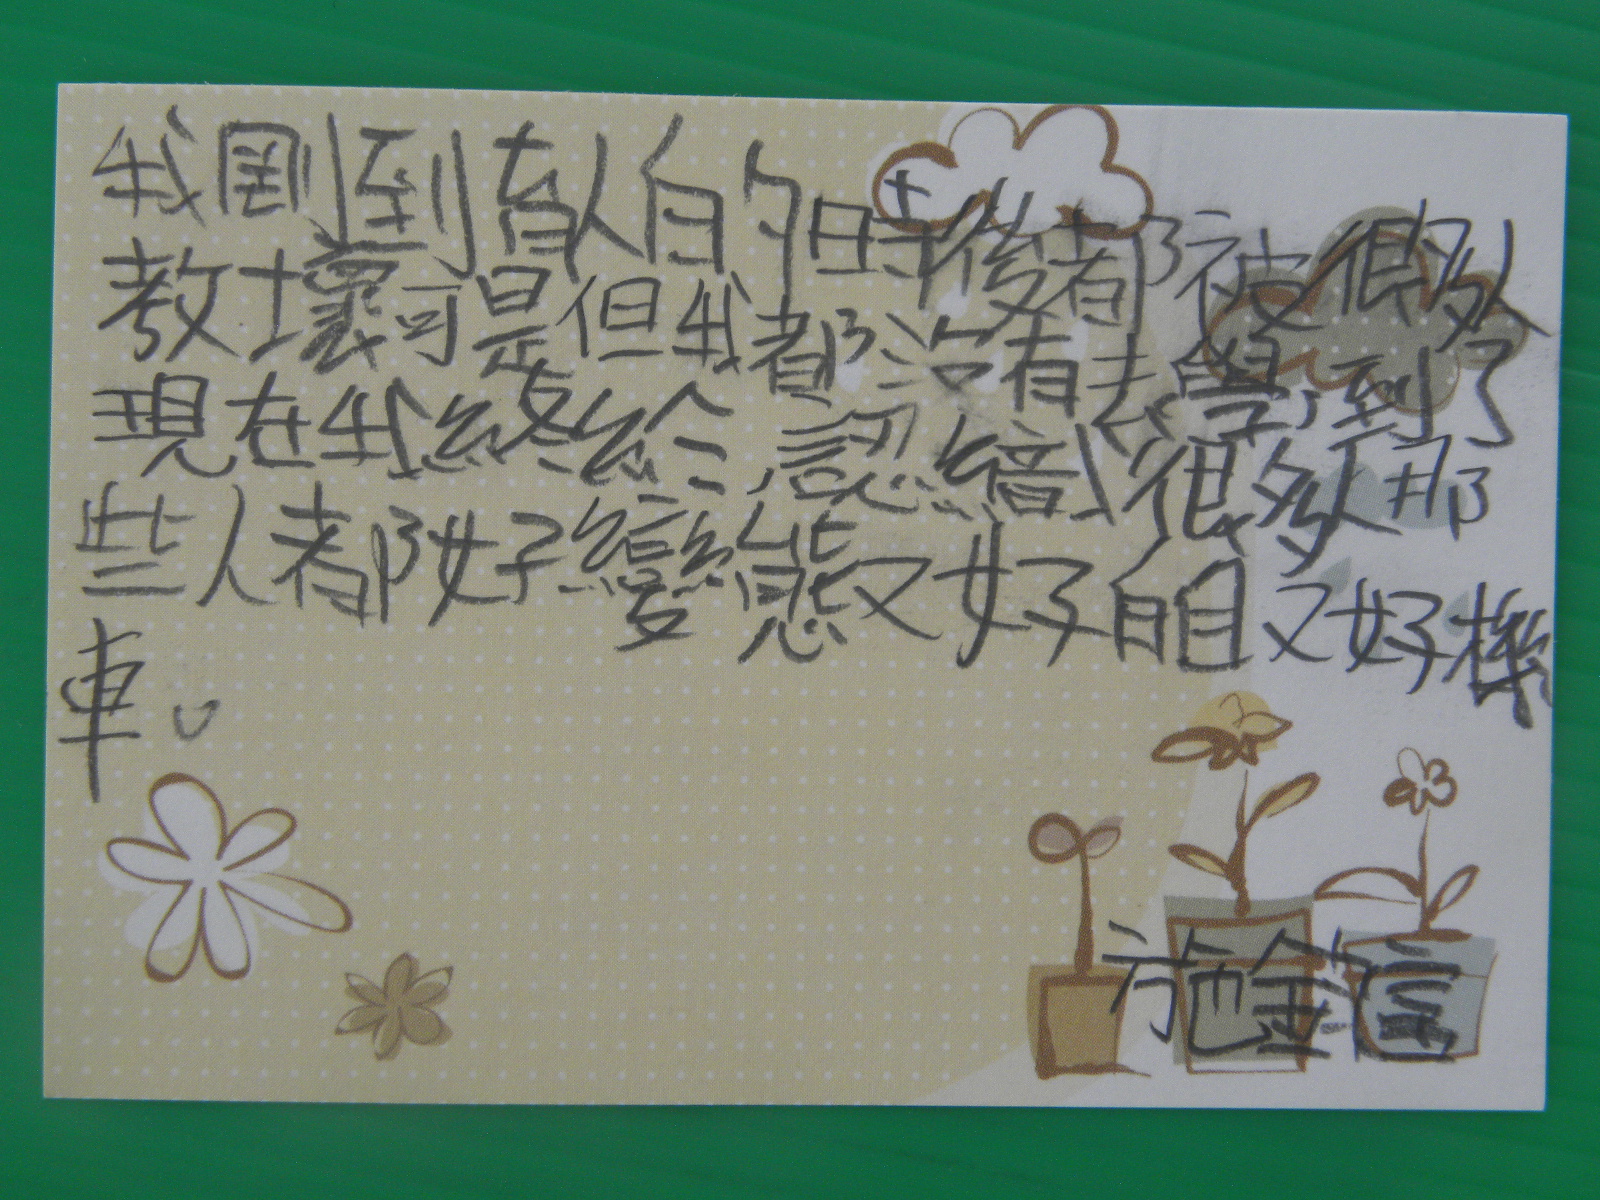 我剛到育人的時後都被很多人
教壞可是但我都沒有去學到了
現在我終給認繶很多人那
些人都好變態又好自目又好機
車。
施金信